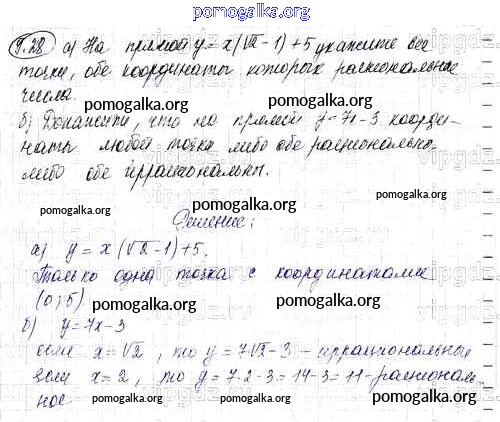 pomogalka.org
9.28 а) На прямой y = x(√2-1)+5 укажите все
точки, обе координаты которых рациональные
числа.
pomogalka.org
б) Докажите, что на прямой y=7x-3 коорди-
наты любой точки либо обе рациональны,
либо обе иррациональны.
pomogalka.org
pomogalka.org
Решение:
а) y = x(√2-1)+5.
pomogalka.org
Только одна точка с координатами
(0;5) pomogalka.org
pomogalka.org
б) y=7x-3
если x=√2, то y=7√2-3 - иррациональные
если x=2, то y=7·2-3=14-3=11-рациональ-
ное. pomogalka.org
pomogalka.org